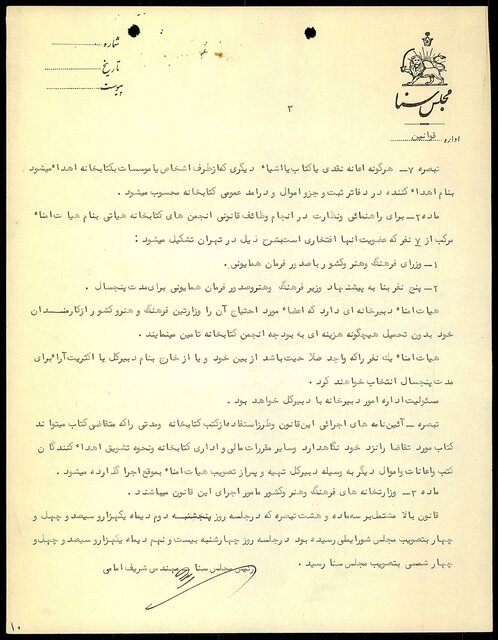 شماره
تاریخ
پیوست
مجلس سنا
اداره قوانین
۳
تبصره ۷ـ هرگونه اعانه نقدی یاکتاب یااشیاء دیگری که ازطرف اشخاص یاموسسات بکتابخانه اهداء میشود
بنام اهداء کننده در دفاتر ثبت و جزو اموال و درامد عمومی کتابخانه محسوب میشود .
ماده۲ـ برای راهنمائی ونظارت در انجام وظائف قانونی انجمن های کتابخانه هیاتی بنام هیات امناء
مرکب از ۷ نفر که عضویت انها افتخاری است بشرح ذیل در تهران تشکیل میشود :
۱ـ وزرای فرهنگ وهنر وکشور باصدور فرمان همایونی .
۲ـ پنج نفر بنا به پیشنهاد وزیر فرهنگ وهنر وصدور فرمان همایونی برای مدت پنجسال .
هیات امناء دبیرخانه ای دارد که اعضاء مورد احتیاج آن را وزارتین فرهنگ و هنر و کشور از کارمندان
خود بدون تحمیل هیچگونه هزینه ای به بودجه انجمن کتابخانه تامین مینمایند .
هیات امناء یك نفر راکه واجد صلاحیت باشد از بین خود و یا از خارج بنام دبیرکل با اکثریت آراء برای
مدت پنجسال انتخاب خواهند کرد .
مسئولیت اداره امور دبیرخانه با دبیرکل خواهد بود .
تبصره ـ آئین نامه های اجرائی این قانون وطرز استفاده ازکتب کتابخانه ومدتی راکه متقاضی کتاب میتواند
کتاب مورد تقاضا را نزد خود نگاهدارد وسایر مقررات مالی و اداری کتابخانه ونحوه تشویق اهداء کنندگان
کتب واعانات واموال دیگر به وسیله دبیرکل تهیه و پس از تصویب هیات امناء بموقع اجرا گذارده میشود .
ماده ۳ـ وزارتخانه های فرهنگ وهنر وکشور مامور اجرای این قانون میباشند .
قانون بالا مشتمل بر سه ماده و هشت تبصره که درجلسه روز پنجشنبه دوم دیماه یکهزار و سیصد و چهل و
چهار بتصویب مجلس شورایملی رسیده بود درجلسه روز چهارشنبه بیست و نهم دیماه یکهزار و سیصد و چهل و
چهار شمسی بتصویب مجلس سنا رسید .
رئیس مجلس سنا ـ مهندس شریف امامی
۱۰